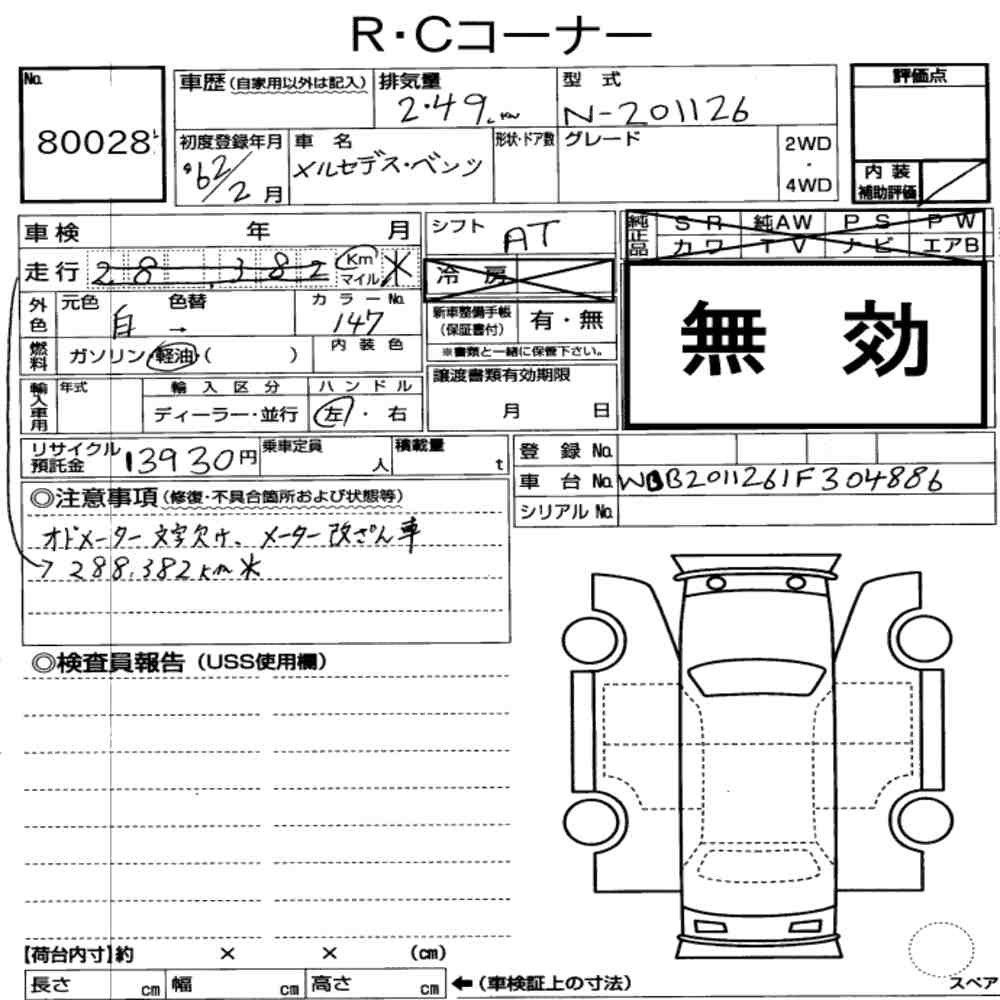 R・Cコーナー
No.
80028
車歴(自家用以外は記入) 排気量 型式 評価点
2.49 N-201126
初度登録年月 車名 形状・ドア数 グレード 2WD
・
4WD
S62/2月 メルセデス・ベンツ
内装
補助評価
車検 年 月 シフト AT
純正品 SR 純AW PS PW
カワ TV ナビ エアB
走行 28,382 Km
マイル ※
冷房
外色 元色 白 → 色替 カラーNo. 147
新車整備手帳
(保証書付) 有・無
※書類と一緒に保管下さい。
無効
燃料 ガソリン・軽油・( ) 内装色
輸入車用 年式 輸入区分 ハンドル
ディーラー・並行 左・右
譲渡書類有効期限
月 日
リサイクル
預託金 13930円 乗車定員 人 積載量 t
登録No.
車台No. WDB2011261F304886
シリアルNo.
◎注意事項(修復・不具合箇所および状態等)
オドメーター文字欠け、メーター改ざん車
→288,382km※
◎検査員報告(USS使用欄)
【荷台内寸】約 × × (cm)
長さ cm 幅 cm 高さ cm ←(車検証上の寸法)
スペア